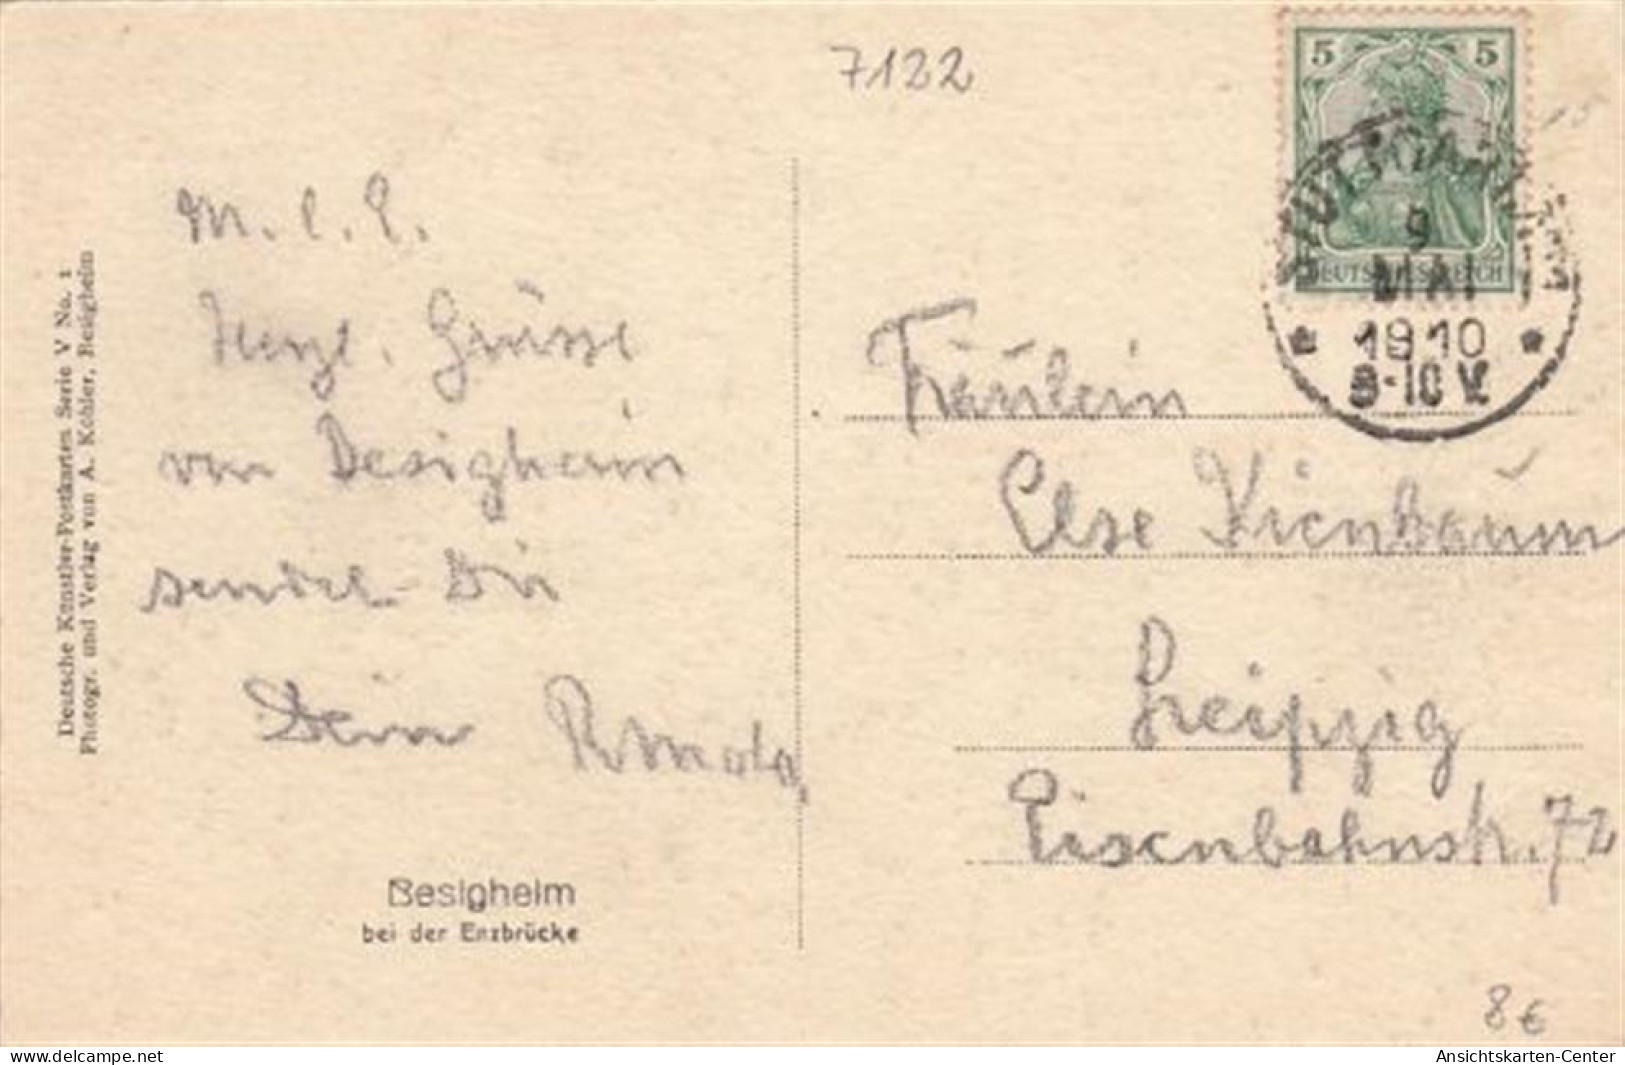 7122
M. l. E.
Herzl. Grüsse
von Besigheim
sendet Dir
Dein
Besigheim
bei der Enzbrücke
Deutsche Künstler-Postkarten Serie V No. 1
Photogr. und Verlag von A. Köhler, Besigheim
5 5
DEUTSCHES REICH
STUTTGART
9
MAI
1910
9-10 V.
Fräulein
Else Kienbaum
Leipzig
Eisenbahnstr. 72
8 €
www.delcampe.net
Ansichtskarten-Center